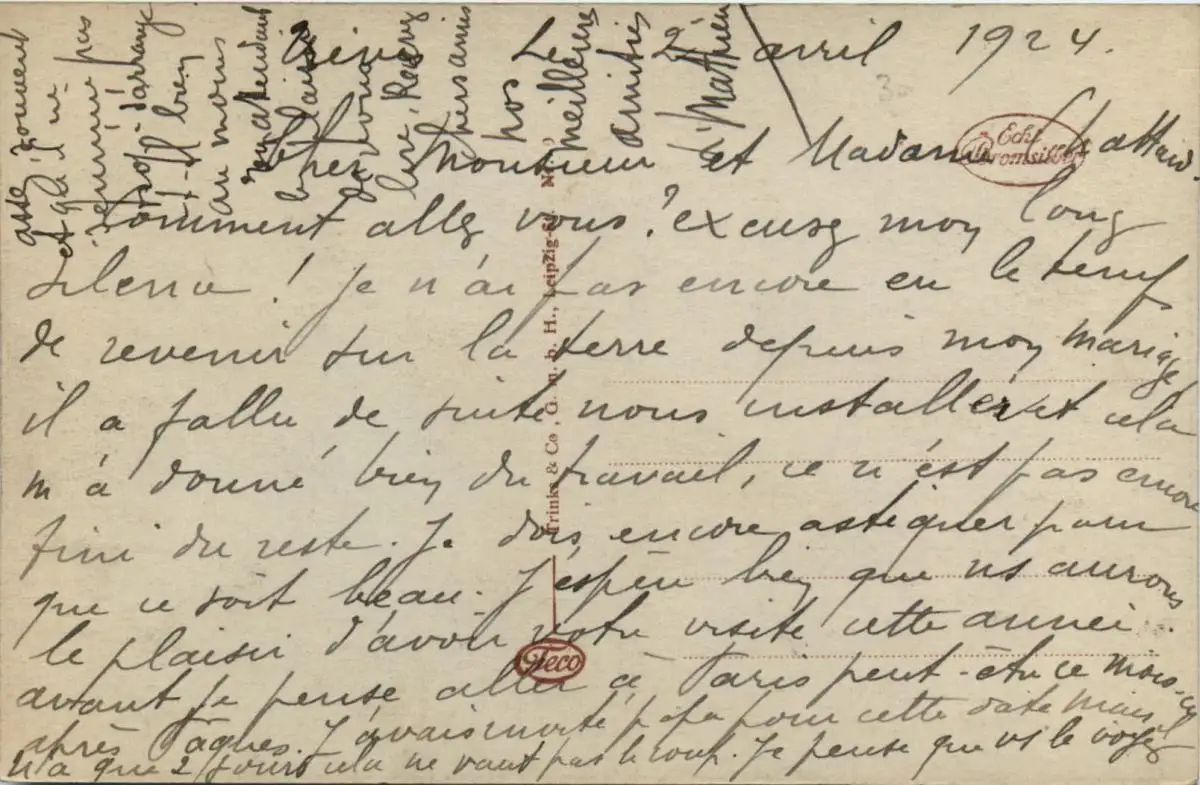 Trèves Le 2 avril 1924.
Cher Monsieur et Madame Chattard.
Comment allez vous? excusez mon long
silence! Je n'ai pas encore eu le temps
de revenir sur la terre depuis mon mariage
il a fallu de suite nous installer et cela
m'a donné bien du travail, ce n'est pas encore
fini du reste. Je dois encore astiquer pour
que ce soit beau. J'espère bien que ns aurons
le plaisir d'avoir votre visite cette année.
avant je pense aller à Paris peut-être ce mois-ci
après Pâques. J'avais invité papa pour cette date mais il
n'a que 2 jours cela ne vaut pas le coup. Je pense que vs le voyez
assez souvent
et qu'il ne
s'ennuie pas
trop. s'arrange
t-il bien
au moins
en attendant
le plaisir
de vous
lire, Recevez
chers amis
nos
meilleures
amitiés
Mathieu
Echt
Bromsilber
Trinks & Co., G. m. b. H., Leipzig
Teco